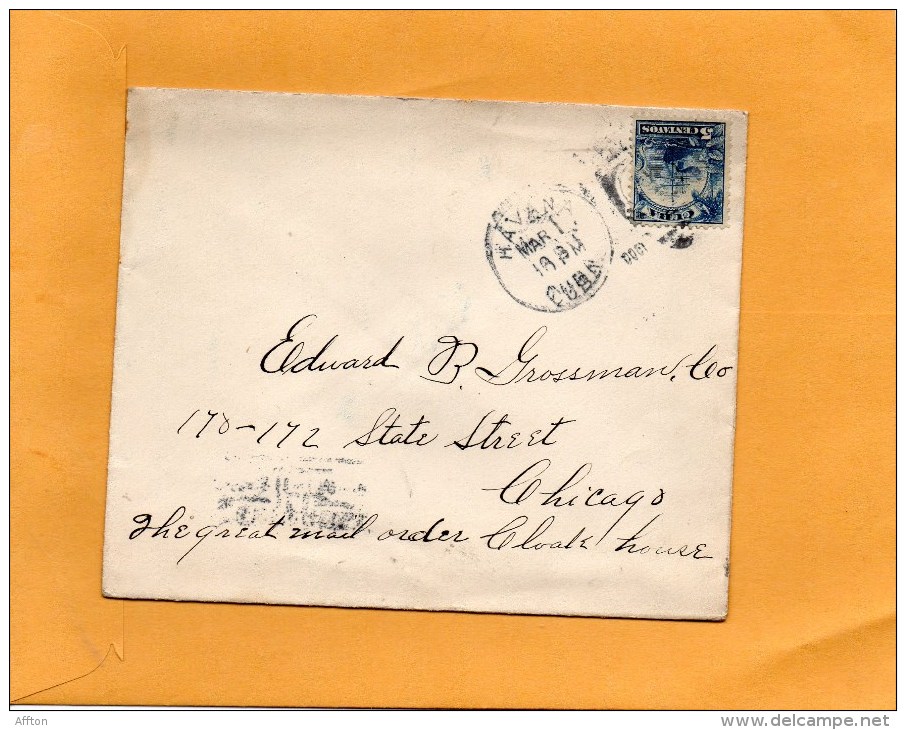 5 CENTAVOS
CUBA
HAVANA
MAR 1
CUBA
1900
Edward B. Grossman, Co
170-172 State Street
Chicago
The great mail order Cloak house
Affton
www.delcampe.net